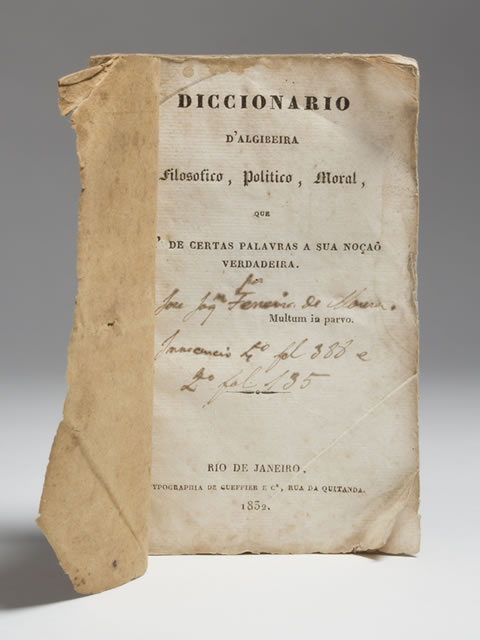 DICCIONARIO
D'ALGIBEIRA
Filosofico, Politico, Moral,
QUE
DE CERTAS PALAVRAS A SUA NOÇAÕ
VERDADEIRA.
por
Jose Joqm Ferreira de Moura.
Multum in parvo.
Innocencio 4º fol 388 e
2º fol 135
RIO DE JANEIRO.
TYPOGRAPHIA DE GUEFFIER E Cª, RUA DA QUITANDA.
1832.